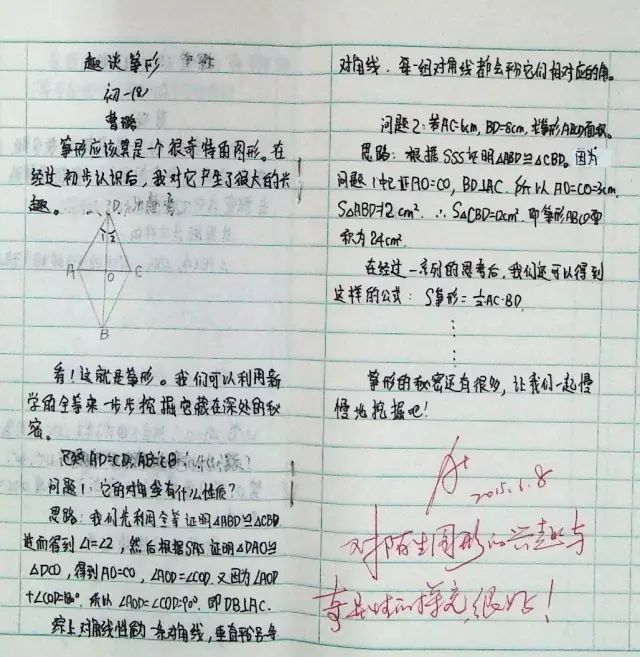 趣谈筝形
初一(2)
曹璐
筝形应该算是一个很奇特的图形。在
经过初步认识后，我对它产生了很大的兴
趣。
D
1 2
A O C
B
看！这就是筝形。我们可以利用新
学的全等来一步步挖掘它藏在深处的秘
密。
已知AD=CD, AB=CB
问题1：它的对角线有什么性质？
思路：我们先利用全等证明△ABD≌△CBD
进而得到∠1=∠2，然后根据SAS证明△DAO≌
△DCO，得到AO=CO，∠AOD=∠COD，又因为∠AOD
+∠COD=180°，所以∠AOD=∠COD=90°，即DB⊥AC.
综上对角线性质：一条对角线，垂直平分另一
对角线，每一组对角线都会平分它们相对应的角。
问题2：若AC=6cm, BD=8cm, 求筝形ABCD面积。
思路：根据SSS证明△ABD≌△CBD。因为
问题1中已证AO=CO，BD⊥AC. 所以AO=CO=3cm,
S△ABD=12cm². ∴S△CBD=12cm². 即筝形ABCD面
积为24cm².
在经过一系列的思考后，我们还可以得到
这样的公式：S筝形=½AC·BD.
⋮
筝形的秘密还有很多，让我们一起慢
慢地挖掘吧！
A+
2015.6.8
对陌生图形的兴趣与
探究，很好！